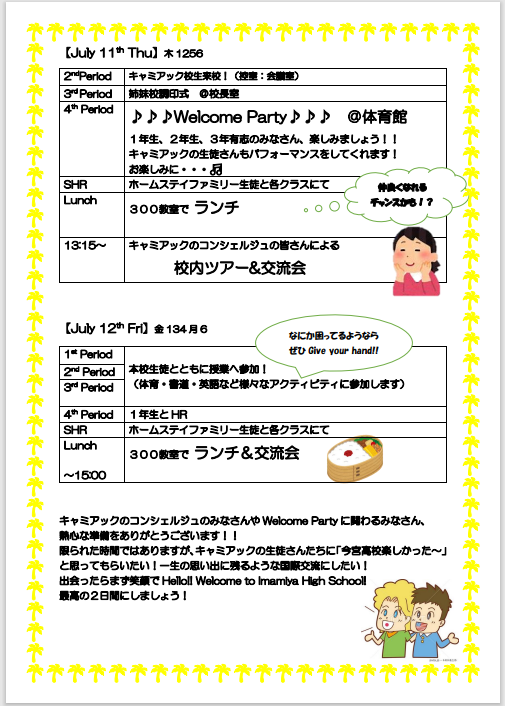 【July 11th Thu】木1256
2ndPeriod キャミアック校生来校！（控室：会議室）
3rd Period 姉妹校調印式　＠校長室
4th Period ♪♪♪Welcome Party♪♪♪　＠体育館
１年生、２年生、３年有志のみなさん、楽しみましょう！！
キャミアックの生徒さんもパフォーマンスをしてくれます！
お楽しみに・・・♫
SHR ホームステイファミリー生徒と各クラスにて
仲良くなれる
チャンスかも！？
Lunch ３００教室で ランチ
13:15～ キャミアックのコンシェルジュの皆さんによる
校内ツアー&交流会
【July 12th Fri】金134月6
なにか困ってるようなら
ぜひ Give your hand!!
1st Period
2nd Period 本校生徒とともに授業へ参加！
3rd Period （体育・書道・英語など様々なアクティビティに参加します）
4th Period １年生とHR
SHR ホームステイファミリー生徒と各クラスにて
Lunch ３００教室で ランチ＆交流会
～15:00
キャミアックのコンシェルジュのみなさんや Welcome Party に関わるみなさん、
熱心な準備をありがとうございます！！
限られた時間ではありますが、キャミアックの生徒さんたちに「今宮高校楽しかった～」
と思ってもらいたい！一生の思い出に残るような国際交流にしたい！
出会ったらまず笑顔で Hello!! Welcome to Imamiya High School!!
最高の２日間にしましょう！